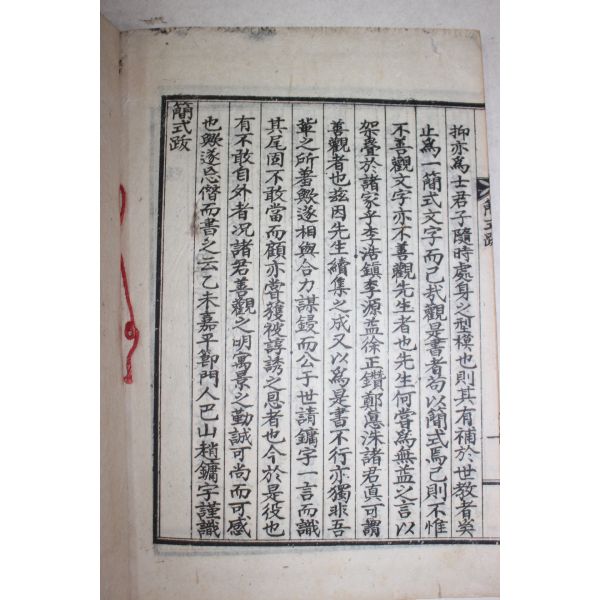 抑亦爲士君子隨時處身之型模也則其有補於世教者矣
止爲一簡式文字而已哉觀是書者句以簡式焉已則不惟
不善觀文字亦不善觀先生者也先生何嘗爲無益之言以
架疊於諸家乎李浩鎮李源孟徐正鑽鄭悳洙諸君眞可謂
善觀者也玆因先生續集之成又以爲是書不行亦獨非吾
輩之所羞歟遂相與合力謀鋟而公于世請鏞字一言而識
其尾固不敢當而顧亦嘗獲被諄誘之恩者也今於是役也
有不敢自外者况諸君善觀之明寓景之勤誠可尚而可感
也歟遂忘僭而書之云乙未嘉平節門人巴山趙鏞字謹識
簡式跋
簡式跋